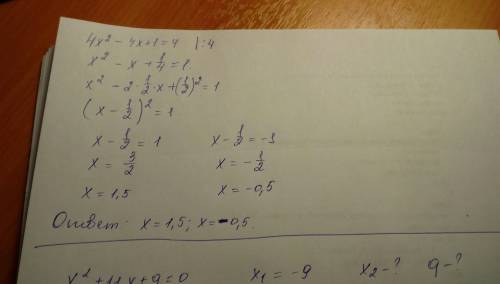 4x² - 4x+1=4 |:4
x² - x + 1/4 = 1.
x² - 2·1/2·x+(1/2)² = 1
(x - 1/2)² = 1
x - 1/2 = 1 x - 1/2 = -1
x = 3/2 x = -1/2
x = 1,5 x = -0,5
Ответ: x = 1,5; x = -0,5.
x² + 11x + q = 0 x₁ = -9 x₂ - ? q - ?